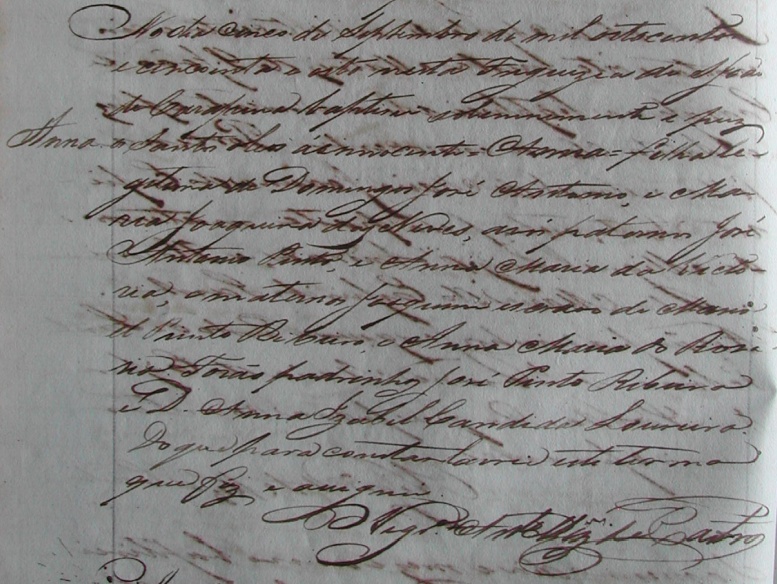 No dia cinco de Septembro de mil oitocento
e cincoenta e oito nesta freguezia de S. José
baptizei solemnemente e puz
Anna
os Santos oleos a innocente Anna = filha le
gitima de Domingos José Antunes, e Ma
ria Joaquina das Neves, avós paternos José
Antonio e Anna Maria da Victo
ria, e maternos Joaquim escravo de Mano
el Pinto Ribeiro, e Anna Maria do Rosa
rio. Forão padrinhos José Pinto Ribeiro
e D. Anna Izabel Candida Loureiro.
Do que para constar lavrei este termo
que fiz e assignei.
O Vigr.º de Castro